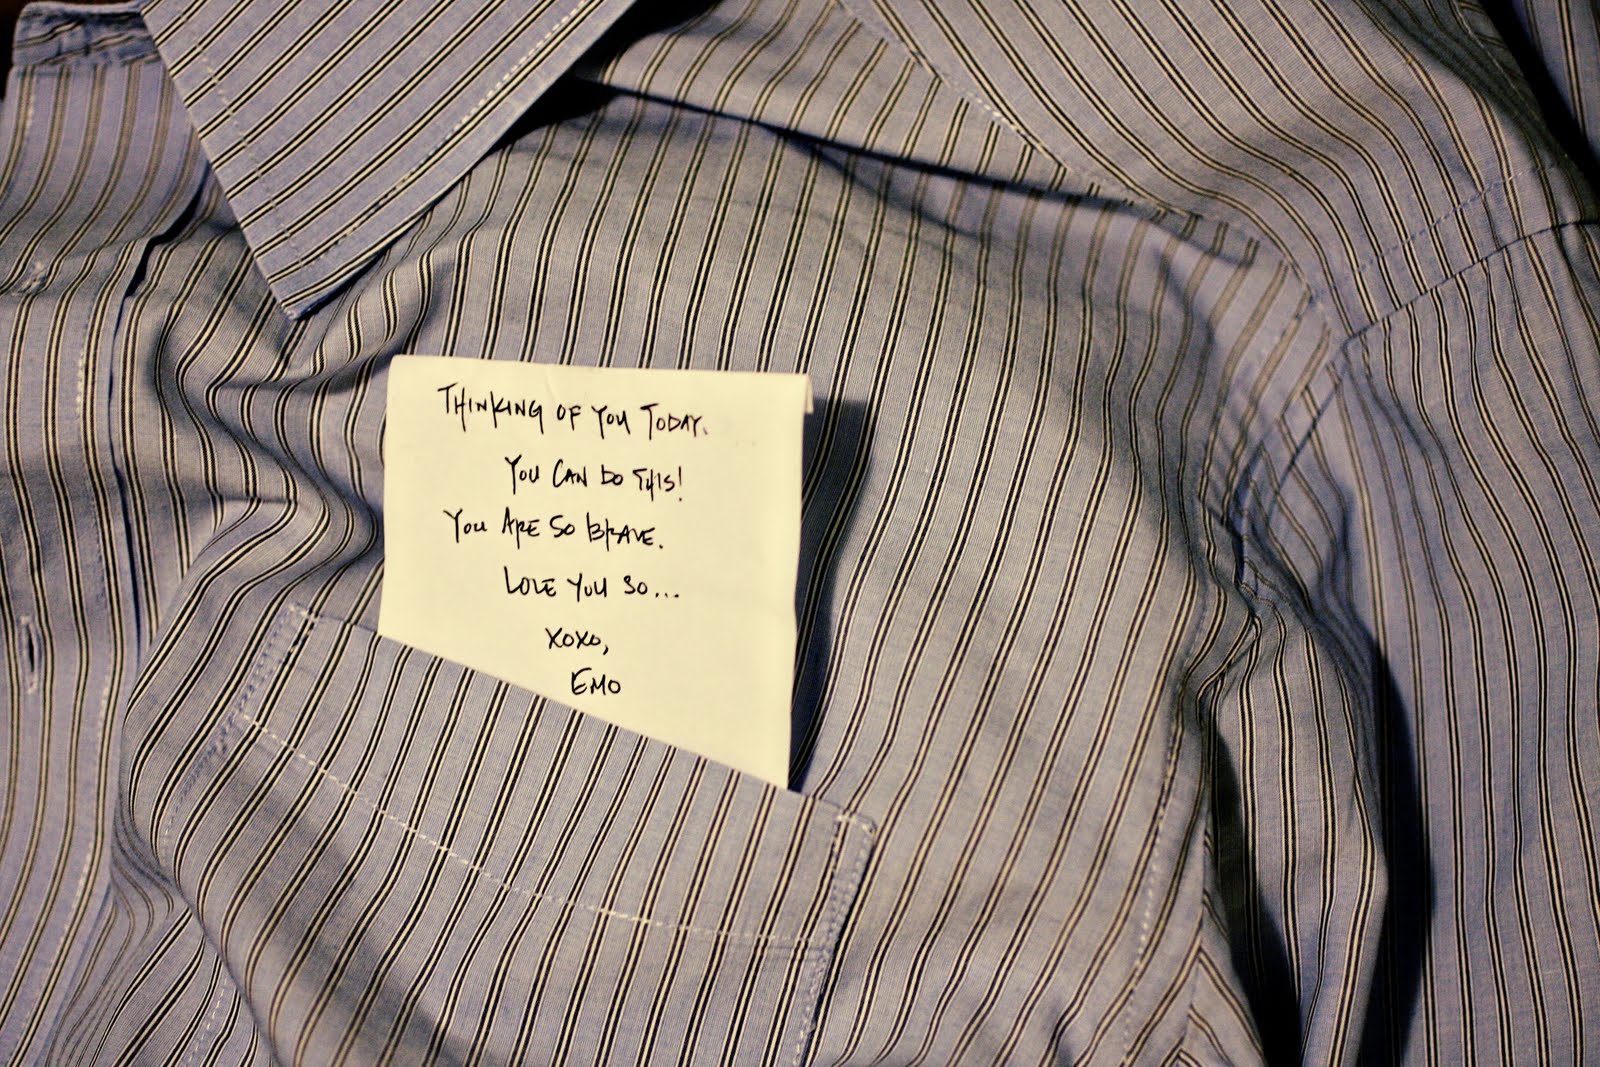 THINKING OF YOU TODAY.
YOU CAN DO THIS!
YOU ARE SO BRAVE.
LOVE YOU SO...
XOXO,
EMO